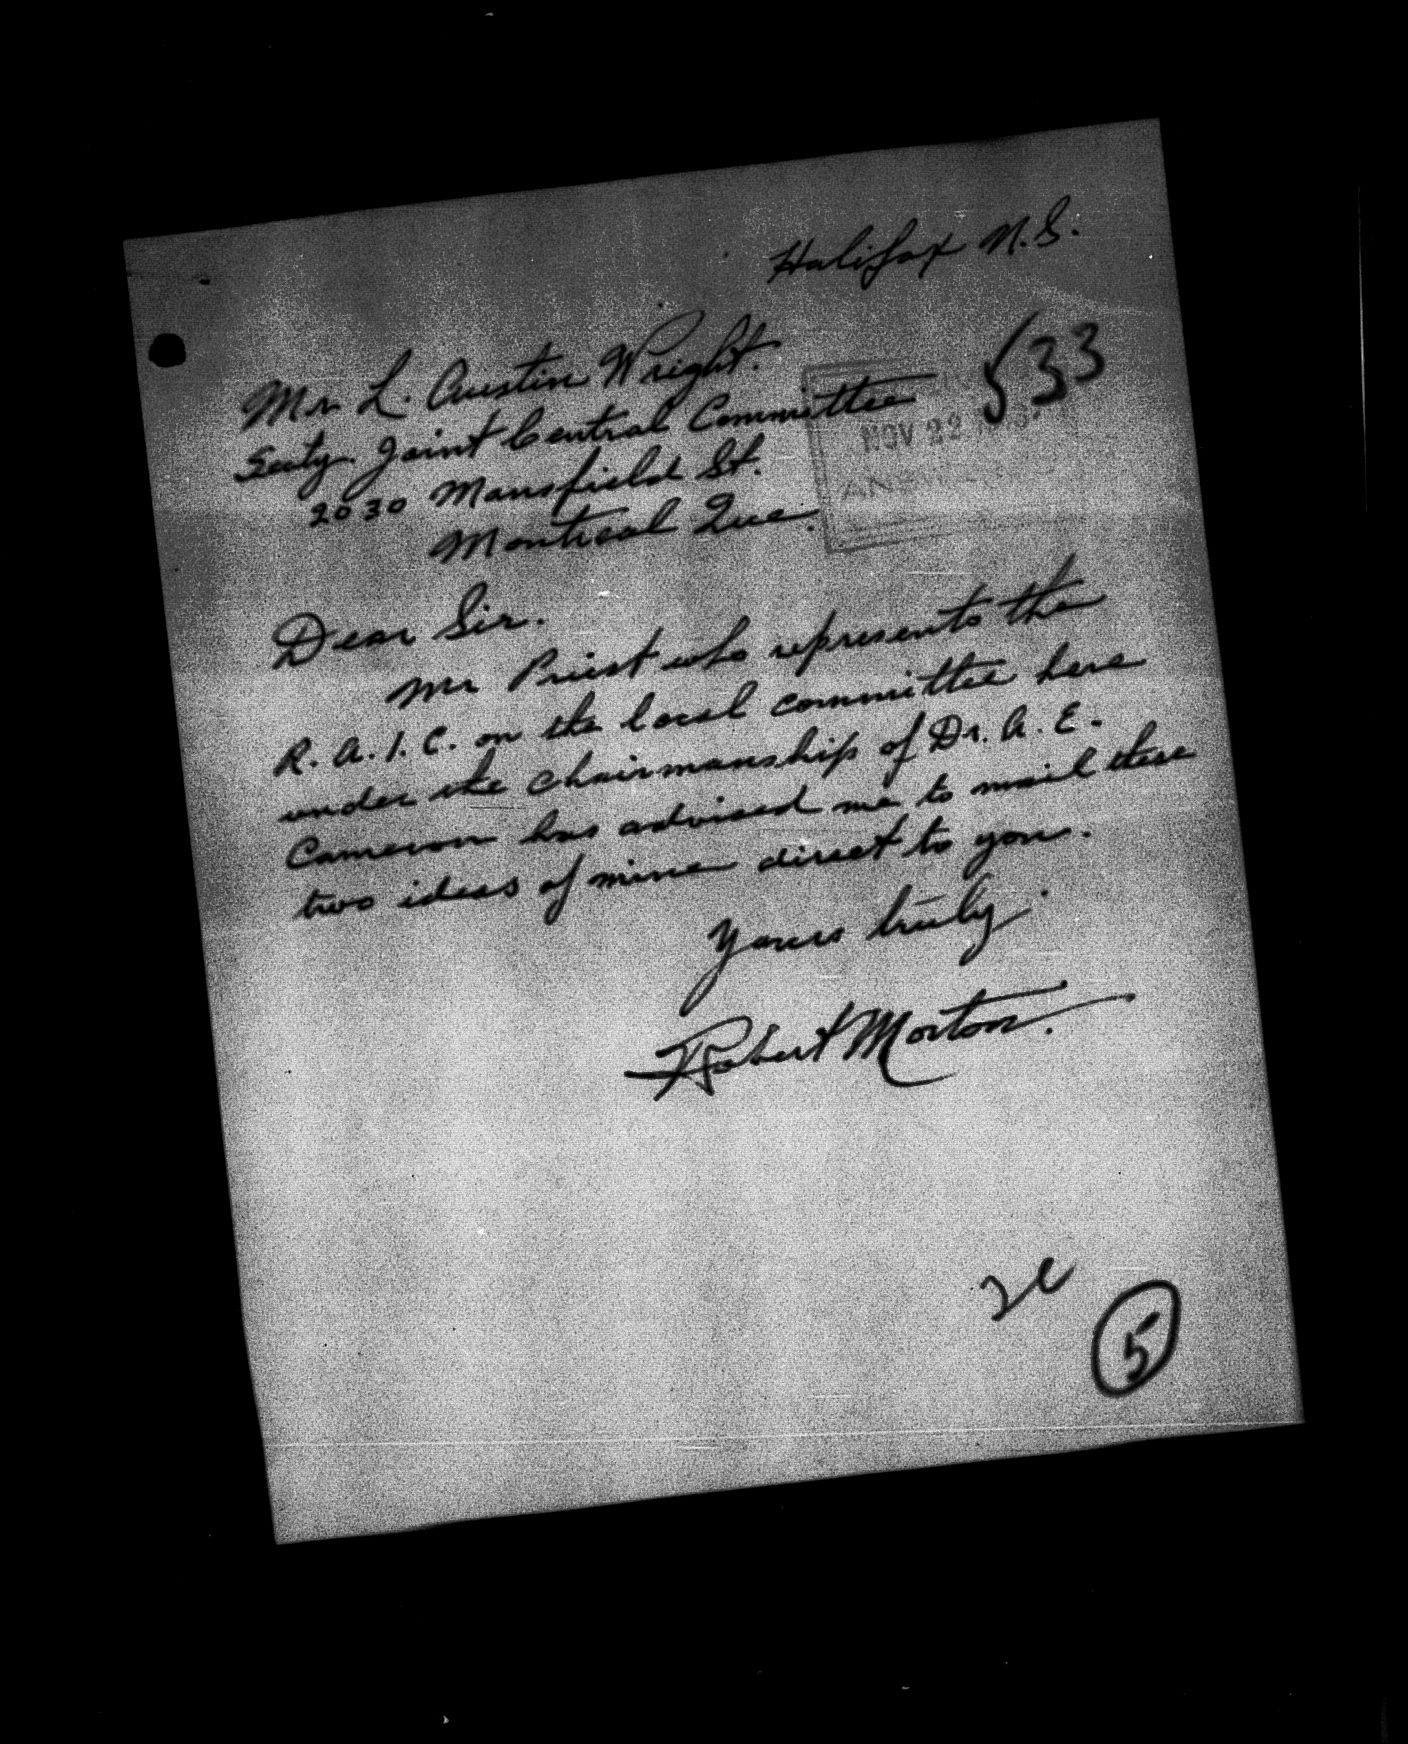 Halifax N.S.
533
Mr. L. Austin Wright.
Secty. Joint Central Committee
NOV 22
2030 Mansfield St.
Montreal Que.
Dear Sir.
Mr Priest who represents the
R. A. I. C. on the local committee here
under the chairmanship of Dr. A. E.
Cameron has advised me to mail these
two ideas of mine direct to you.
Yours truly.
Robert Morton.
5